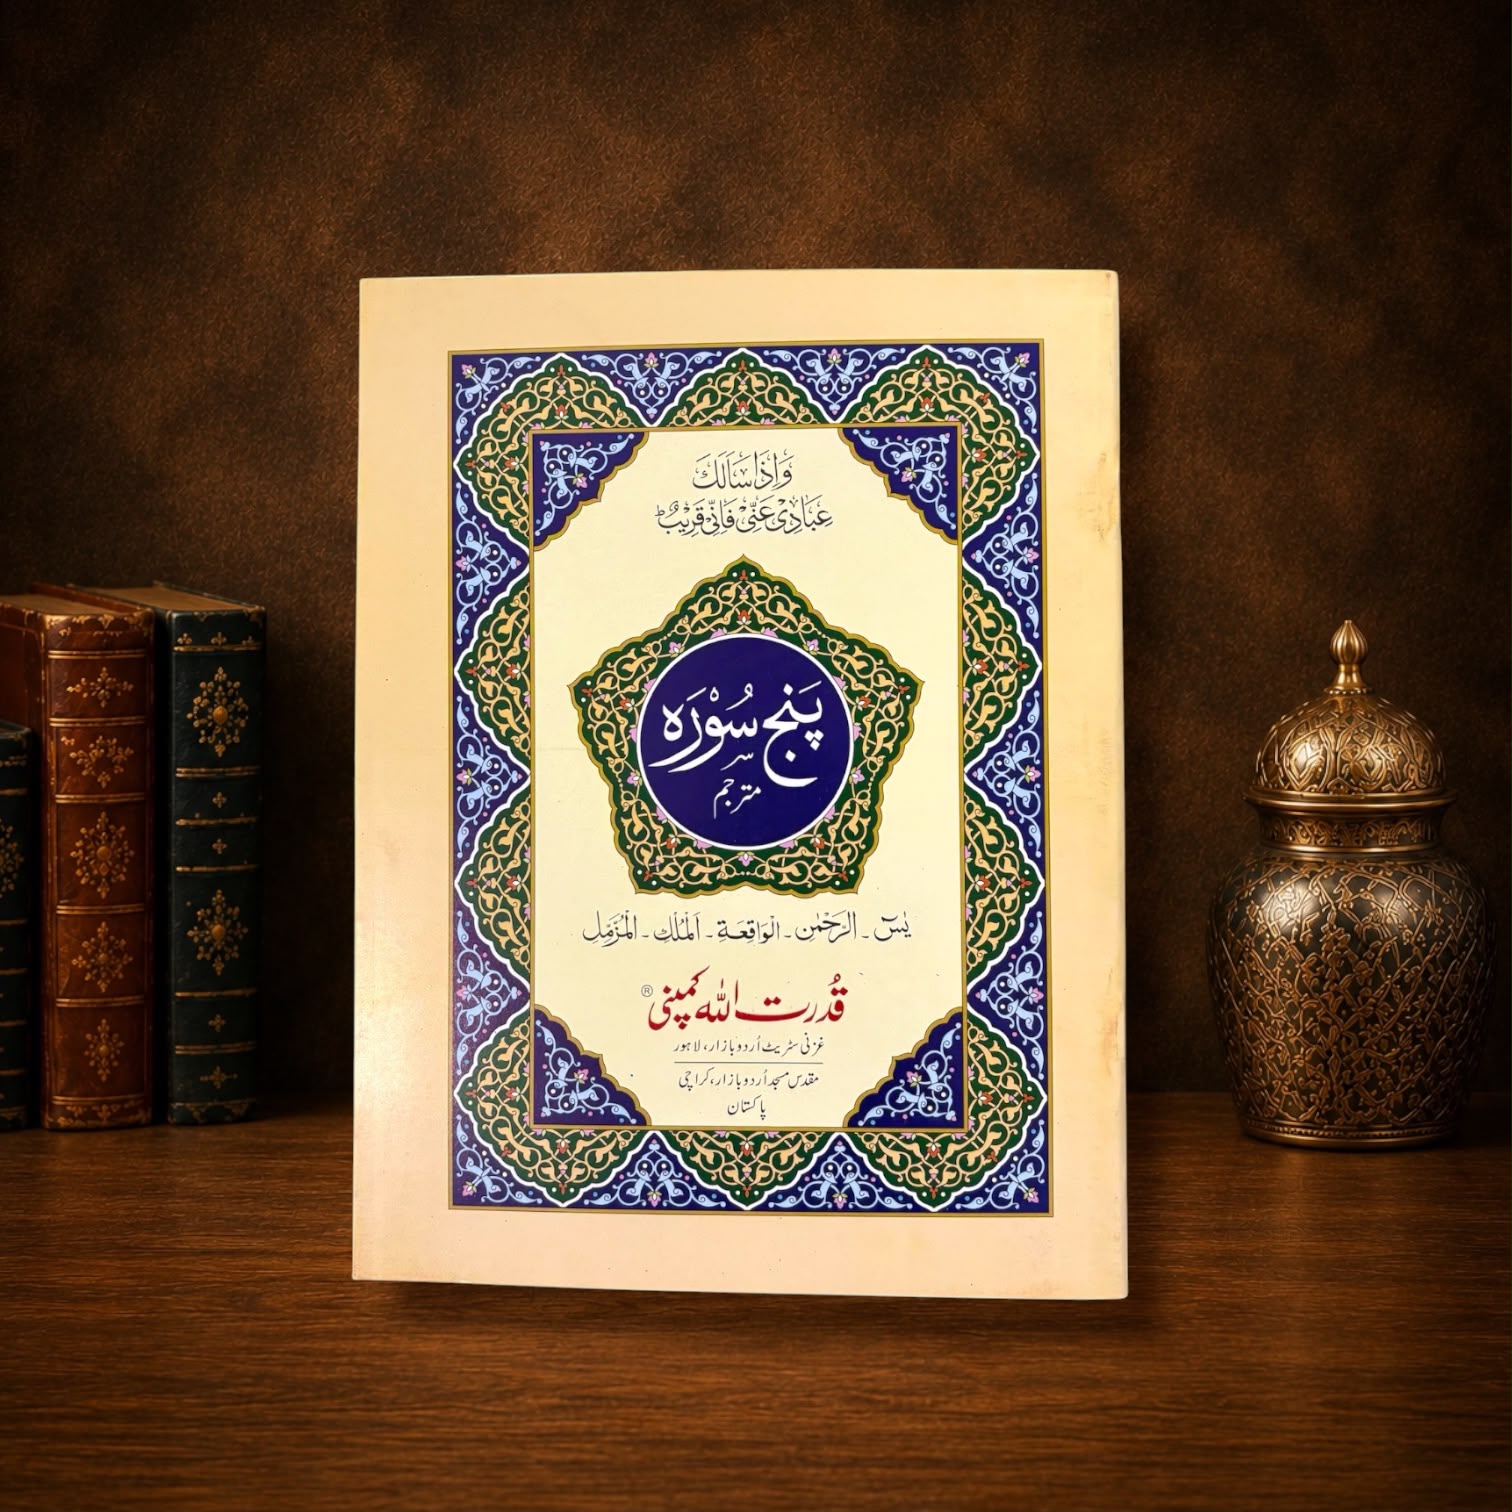 وَاِذَا سَاَلَكَ
عِبَادِیْ عَنِّیْ فَاِنِّیْ قَرِیْبٌ ؕ
پَنج سُوْرَہ
مترجم
یٰسٓ ۔ الرَحْمٰن ۔ الوَاقِعَۃِ ۔ اَلمُلْك ۔ الْمُزَّمِّل
قُدرت اللہ کمپنی ®
غزنی سٹریٹ اُردو بازار، لاہور
مقدس مسجد اُردو بازار، کراچی
پاکستان